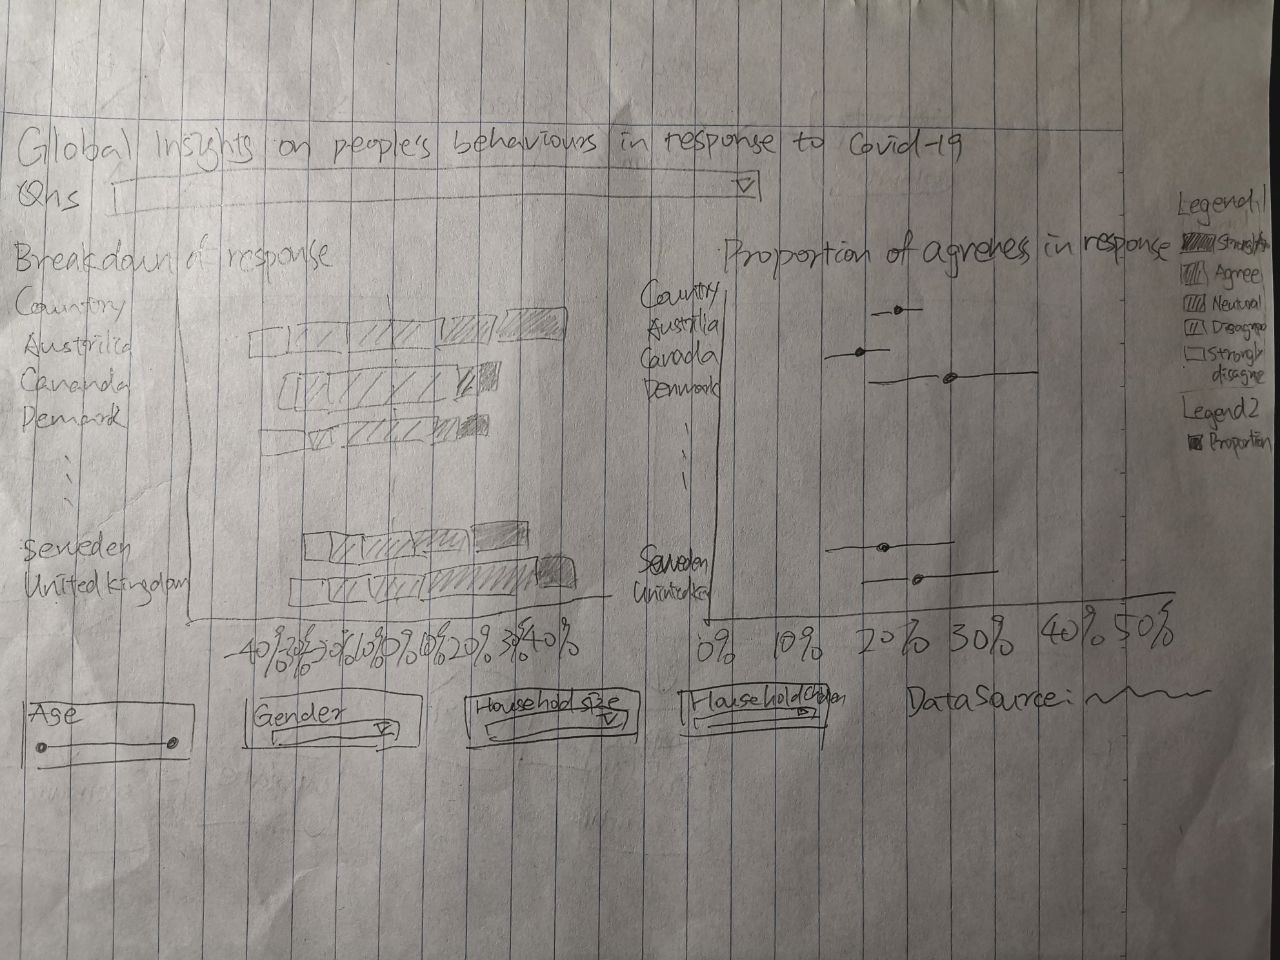 Global Insights on people's behaviours in response to Covid-19
Qns
Breakdown of response
Country
Austrilia
Cananda
Demark
Seweden
United kingdom
-40% -30% -20% 10% 0% 10% 20% 30% 40%
Proportion of agrenes in response
Country
Austrilia
Canada
Denmark
Seweden
0% 10% 20% 30% 40% 50%
Legend1
Agree
Neutural
Strongly
disagree
Legend2
Proportion
Age
Gender
Household size
Household
Data Source: